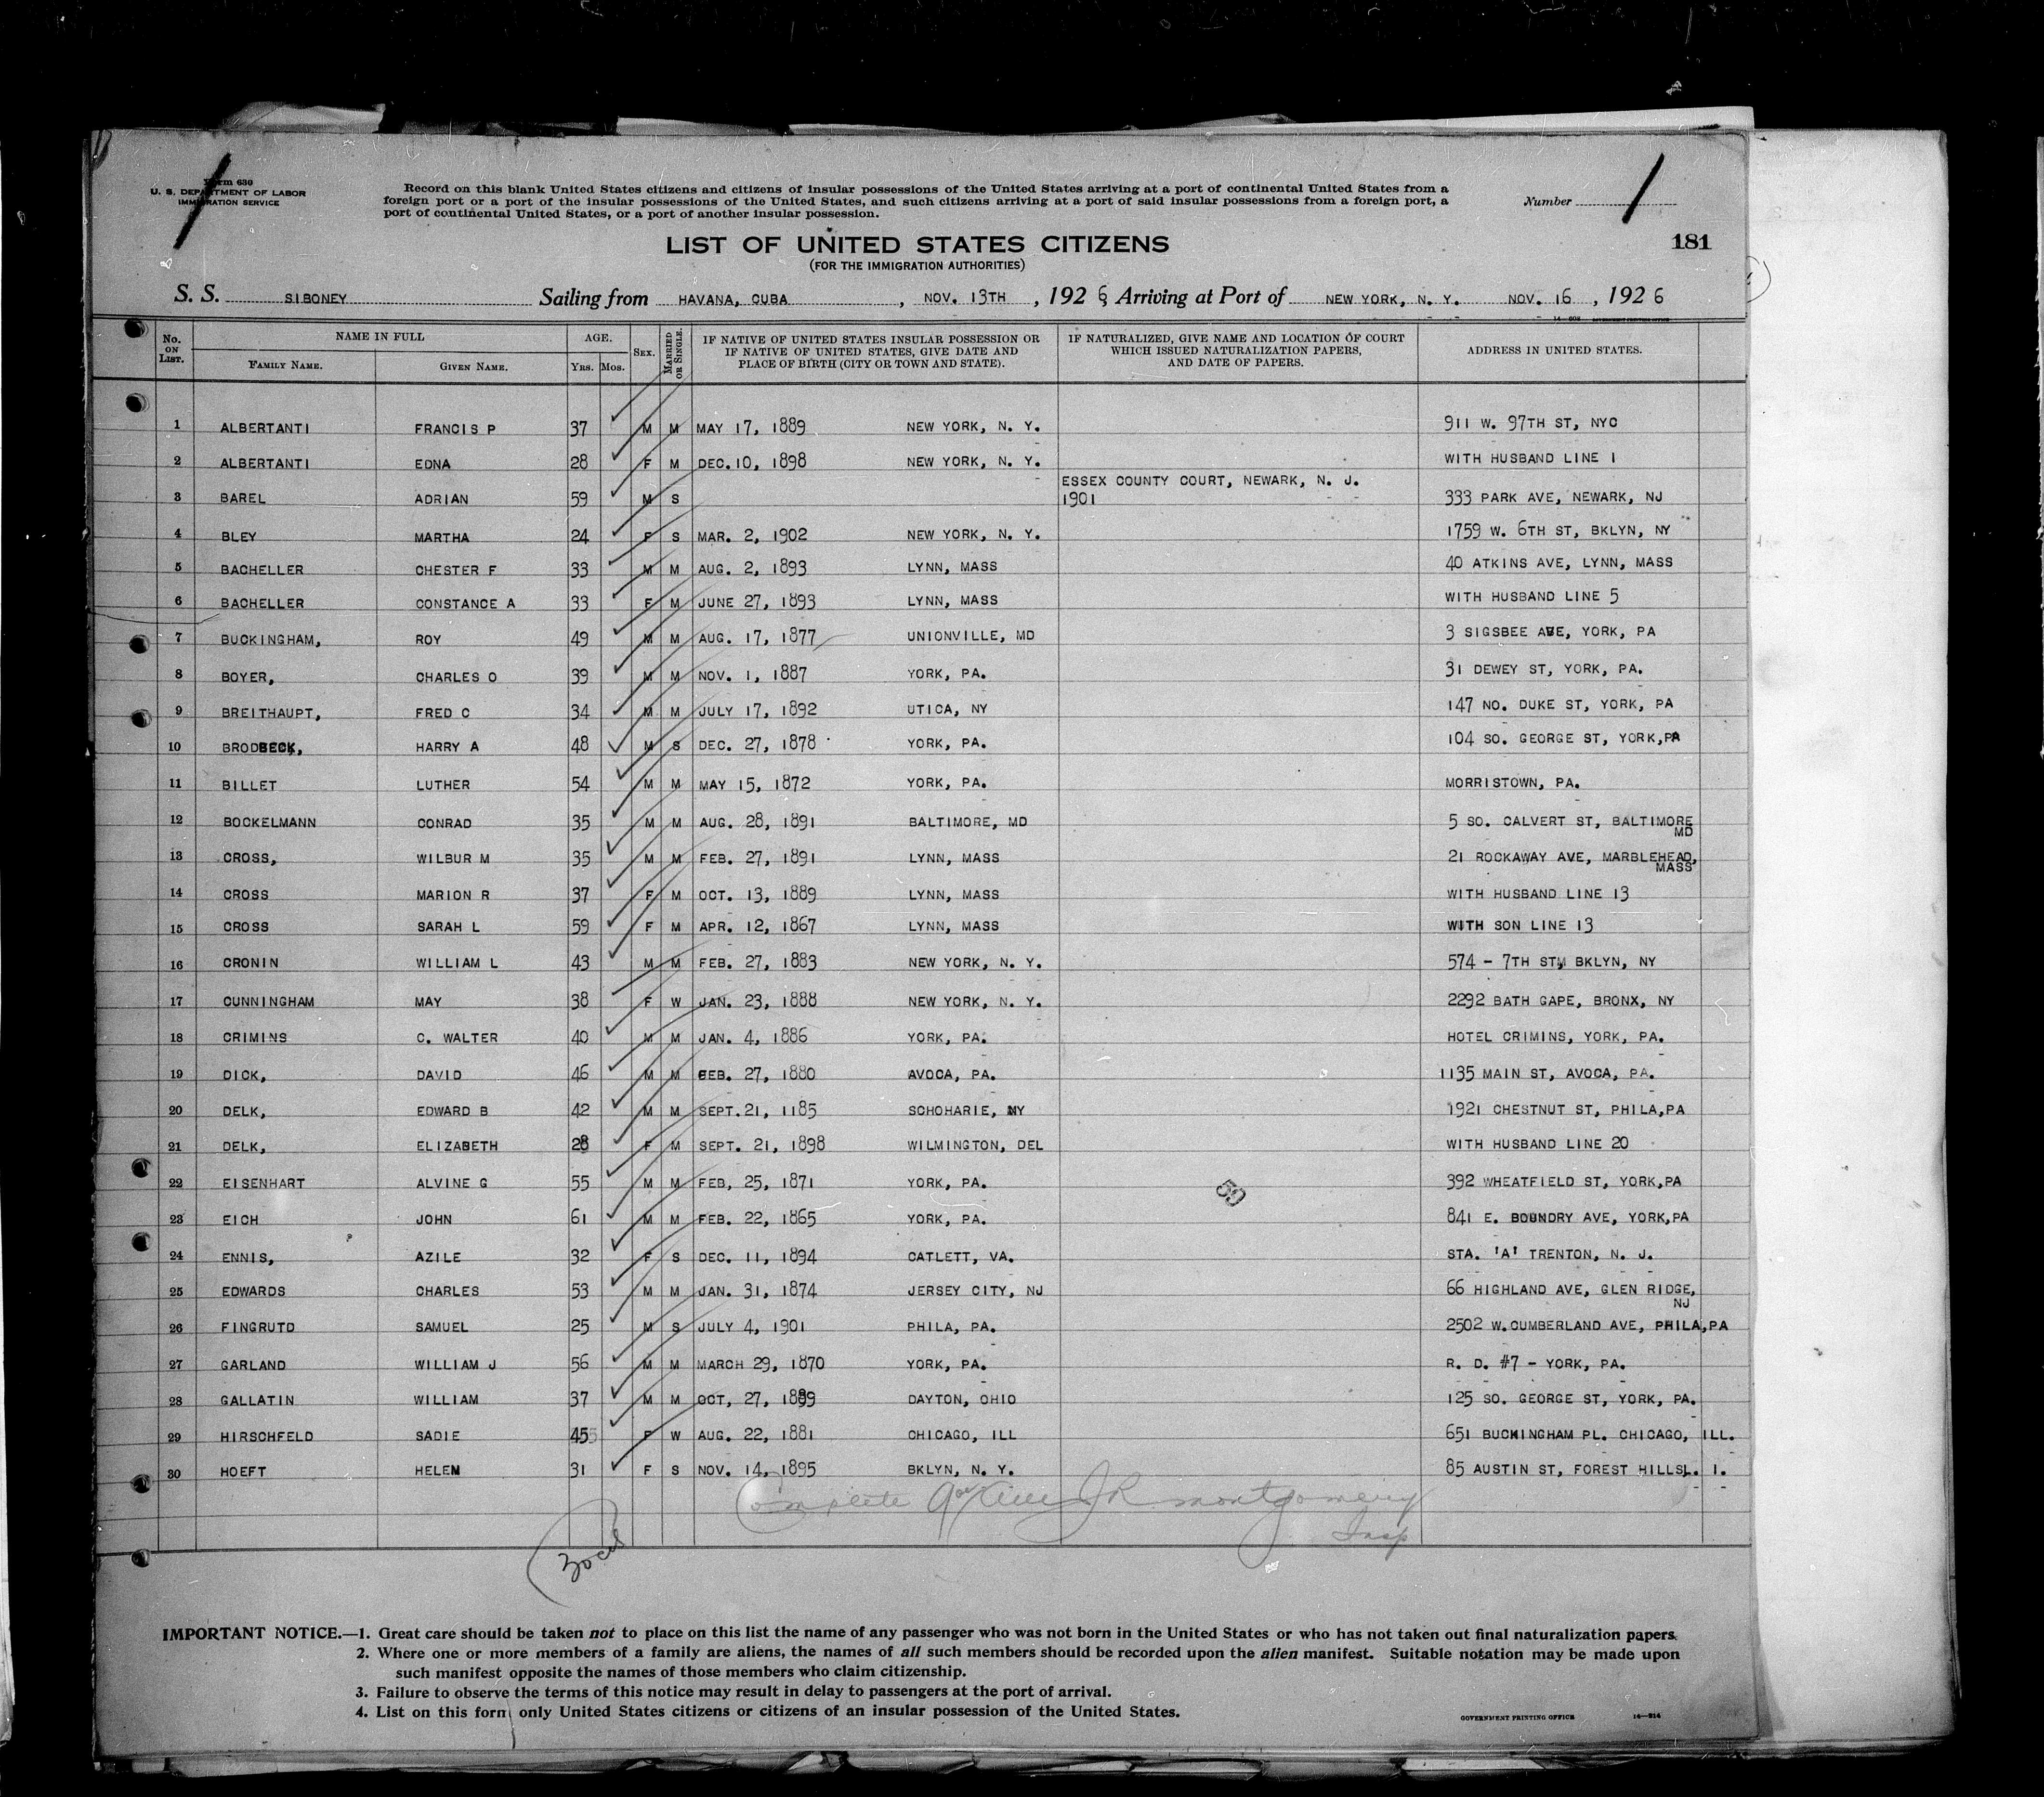 Form 630
U. S. DEPARTMENT OF LABOR
IMMIGRATION SERVICE
Record on this blank United States citizens and citizens of insular possessions of the United States arriving at a port of continental United States from a
foreign port or a port of the insular possessions of the United States, and such citizens arriving at a port of said insular possessions from a foreign port, a
port of continental United States, or a port of another insular possession.
Number
LIST OF UNITED STATES CITIZENS
(FOR THE IMMIGRATION AUTHORITIES)
181
S. S. SIBONEY Sailing from HAVANA, CUBA, NOV. 13TH, 1926, Arriving at Port of NEW YORK, N. Y. NOV. 16, 1926
No. ON LIST. NAME IN FULL FAMILY NAME. GIVEN NAME. AGE. Yrs. Mos. SEX. MARRIED OR SINGLE. IF NATIVE OF UNITED STATES INSULAR POSSESSION OR IF NATIVE OF UNITED STATES, GIVE DATE AND PLACE OF BIRTH (CITY OR TOWN AND STATE). IF NATURALIZED, GIVE NAME AND LOCATION OF COURT WHICH ISSUED NATURALIZATION PAPERS, AND DATE OF PAPERS. ADDRESS IN UNITED STATES.
1 ALBERTANTI FRANCIS P 37 M M MAY 17, 1889 NEW YORK, N. Y. 911 W. 97TH ST, NYC
2 ALBERTANTI EDNA 28 F M DEC. 10, 1898 NEW YORK, N. Y. WITH HUSBAND LINE 1
3 BAREL ADRIAN 59 M S ESSEX COUNTY COURT, NEWARK, N. J. 1901 333 PARK AVE, NEWARK, NJ
4 BLEY MARTHA 24 F S MAR. 2, 1902 NEW YORK, N. Y. 1759 W. 6TH ST, BKLYN, NY
5 BACHELLER CHESTER F 33 M M AUG. 2, 1893 LYNN, MASS 40 ATKINS AVE, LYNN, MASS
6 BACHELLER CONSTANCE A 33 F M JUNE 27, 1893 LYNN, MASS WITH HUSBAND LINE 5
7 BUCKINGHAM, ROY 49 M M AUG. 17, 1877 UNIONVILLE, MD 3 SIGSBEE AVE, YORK, PA
8 BOYER, CHARLES O 39 M M NOV. 1, 1887 YORK, PA. 31 DEWEY ST, YORK, PA.
9 BREITHAUPT, FRED C 34 M M JULY 17, 1892 UTICA, NY 147 NO. DUKE ST, YORK, PA
10 BRODBECK, HARRY A 48 M S DEC. 27, 1878 YORK, PA. 104 SO. GEORGE ST, YORK,PA
11 BILLET LUTHER 54 M M MAY 15, 1872 YORK, PA. MORRISTOWN, PA.
12 BOCKELMANN CONRAD 35 M M AUG. 28, 1891 BALTIMORE, MD 5 SO. CALVERT ST, BALTIMORE MD
13 CROSS, WILBUR M 35 M M FEB. 27, 1891 LYNN, MASS 21 ROCKAWAY AVE, MARBLEHEAD, MASS
14 CROSS MARION R 37 F M OCT. 13, 1889 LYNN, MASS WITH HUSBAND LINE 13
15 CROSS SARAH L 59 F M APR. 12, 1867 LYNN, MASS WITH SON LINE 13
16 CRONIN WILLIAM L 43 M M FEB. 27, 1883 NEW YORK, N. Y. 574 - 7TH ST, BKLYN, NY
17 CUNNINGHAM MAY 38 F W JAN. 23, 1888 NEW YORK, N. Y. 2292 BATH GAPE, BRONX, NY
18 CRIMINS C. WALTER 40 M M JAN. 4, 1886 YORK, PA. HOTEL CRIMINS, YORK, PA.
19 DICK, DAVID 46 M M FEB. 27, 1880 AVOCA, PA. 1135 MAIN ST, AVOCA, PA.
20 DELK, EDWARD B 42 M M SEPT. 21, 1185 SCHOHARIE, NY 1921 CHESTNUT ST, PHILA,PA
21 DELK, ELIZABETH 28 F M SEPT. 21, 1898 WILMINGTON, DEL WITH HUSBAND LINE 20
22 EISENHART ALVINE G 55 M M FEB, 25, 1871 YORK, PA. 392 WHEATFIELD ST, YORK,PA
23 EICH JOHN 61 M M FEB. 22, 1865 YORK, PA. 841 E. BOUNDRY AVE, YORK,PA
24 ENNIS, AZILE 32 F S DEC. 11, 1894 CATLETT, VA. STA. 'A' TRENTON, N. J.
25 EDWARDS CHARLES 53 M M JAN. 31, 1874 JERSEY CITY, NJ 66 HIGHLAND AVE, GLEN RIDGE, NJ
26 FINGRUTD SAMUEL 25 M S JULY 4, 1901 PHILA, PA. 2502 W.CUMBERLAND AVE, PHILA,PA
27 GARLAND WILLIAM J 56 M M MARCH 29, 1870 YORK, PA. R. D. #7 - YORK, PA.
28 GALLATIN WILLIAM 37 M M OCT, 27, 1889 DAYTON, OHIO 125 SO. GEORGE ST, YORK, PA.
29 HIRSCHFELD SADIE 45 F W AUG. 22, 1881 CHICAGO, ILL 651 BUCKINGHAM PL. CHICAGO, ILL.
30 HOEFT HELEN 31 F S NOV. 14, 1895 BKLYN, N. Y. 85 AUSTIN ST, FOREST HILLS L. I.
50
Complete JR Montgomery
Insp
IMPORTANT NOTICE.—1. Great care should be taken not to place on this list the name of any passenger who was not born in the United States or who has not taken out final naturalization papers.
2. Where one or more members of a family are aliens, the names of all such members should be recorded upon the alien manifest. Suitable notation may be made upon
such manifest opposite the names of those members who claim citizenship.
3. Failure to observe the terms of this notice may result in delay to passengers at the port of arrival.
4. List on this form only United States citizens or citizens of an insular possession of the United States.
GOVERNMENT PRINTING OFFICE 14—214